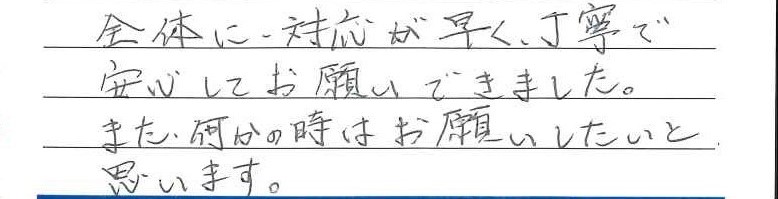 全体に、対応が早く、丁寧で
安心してお願いできました。
また、何かの時はお願いしたいと
思います。